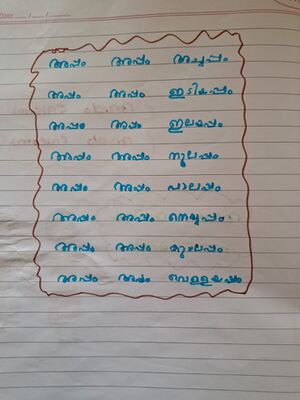 Date
അപ്പം അപ്പം അച്ചപ്പം
അപ്പം അപ്പം ഇടിയപ്പം
അപ്പം അപ്പം ഇലയപ്പം
അപ്പം അപ്പം നൂലപ്പം
അപ്പം അപ്പം പാലപ്പം
അപ്പം അപ്പം നെയ്യപ്പം
അപ്പം അപ്പം കുഴലപ്പം
അപ്പം അപ്പം വെള്ളയപ്പം